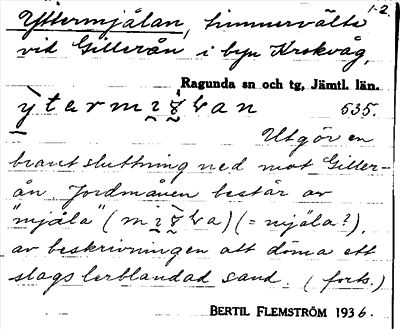 1-2.
Yttermjälan, timmervälta
vid Gillerån i byn Krokvåg,
Ragunda sn och tg, Jämtl. län.
535.
Utgör en
brant sluttning ned mot Giller-
ån. Jordmånen består av
"mjäla" (= mjäla?),
av beskrivningen att döma ett
slags lerblandad sand. (forts.)
BERTIL FLEMSTRÖM 1936.